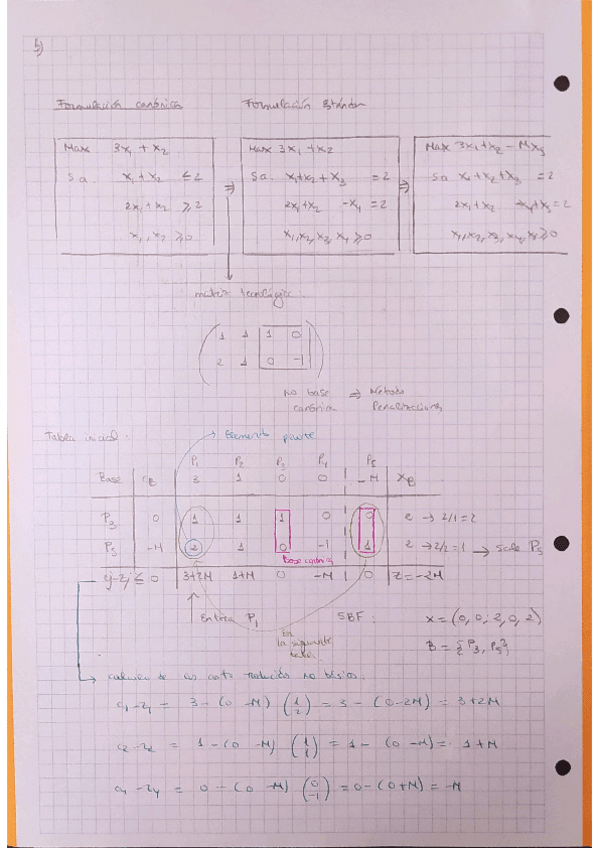 Formulación canónica Formulación Estándar
Max 3x₁ + x₂
S.a. x₁ + x₂ ≤ 2
2x₁ + x₂ ≥ 2
x₁, x₂ ≥ 0
⇒
Max 3x₁ + x₂
S.a. x₁ + x₂ + x₃ = 2
2x₁ + x₂ - x₄ = 2
x₁, x₂, x₃, x₄ ≥ 0
⇒
Max 3x₁ + x₂ - Mx₅
S.a x₁ + x₂ + x₃ = 2
2x₁ + x₂ - x₄ + x₅ = 2
x₁, x₂, x₃, x₄, x₅ ≥ 0
matriz tecnológica:
1 1 1 0
2 1 0 -1
No base canónica ⇒ Método Penalizaciones
Tabla inicial: → Elemento pivote
P₁ P₂ P₃ P₄ P₅
Base CB 3 1 0 0 -M XB
P₃ 0 1 1 1 0 0 2 → 2/1 = 2
P₅ -M 2 1 0 -1 1 2 → 2/2 = 1 → Sale P₅
Base canónica
cj - zj ≤ 0 3+2M 1+M 0 -M 0 Z = -2M
Entra P₁
en la siguiente tabla
SBF: X = (0, 0, 2, 0, 2)
B = {P₃, P₅}
c₁ - z₁ = 3 - (0 -M) (1 2) = 3 - (0-2M) = 3 + 2M
c₂ - z₂ = 1 - (0 -M) (1 1) = 1 - (0 -M) = 1 + M
c₄ - z₄ = 0 - (0 -M) (0 -1) = 0 - (0+M) = -M